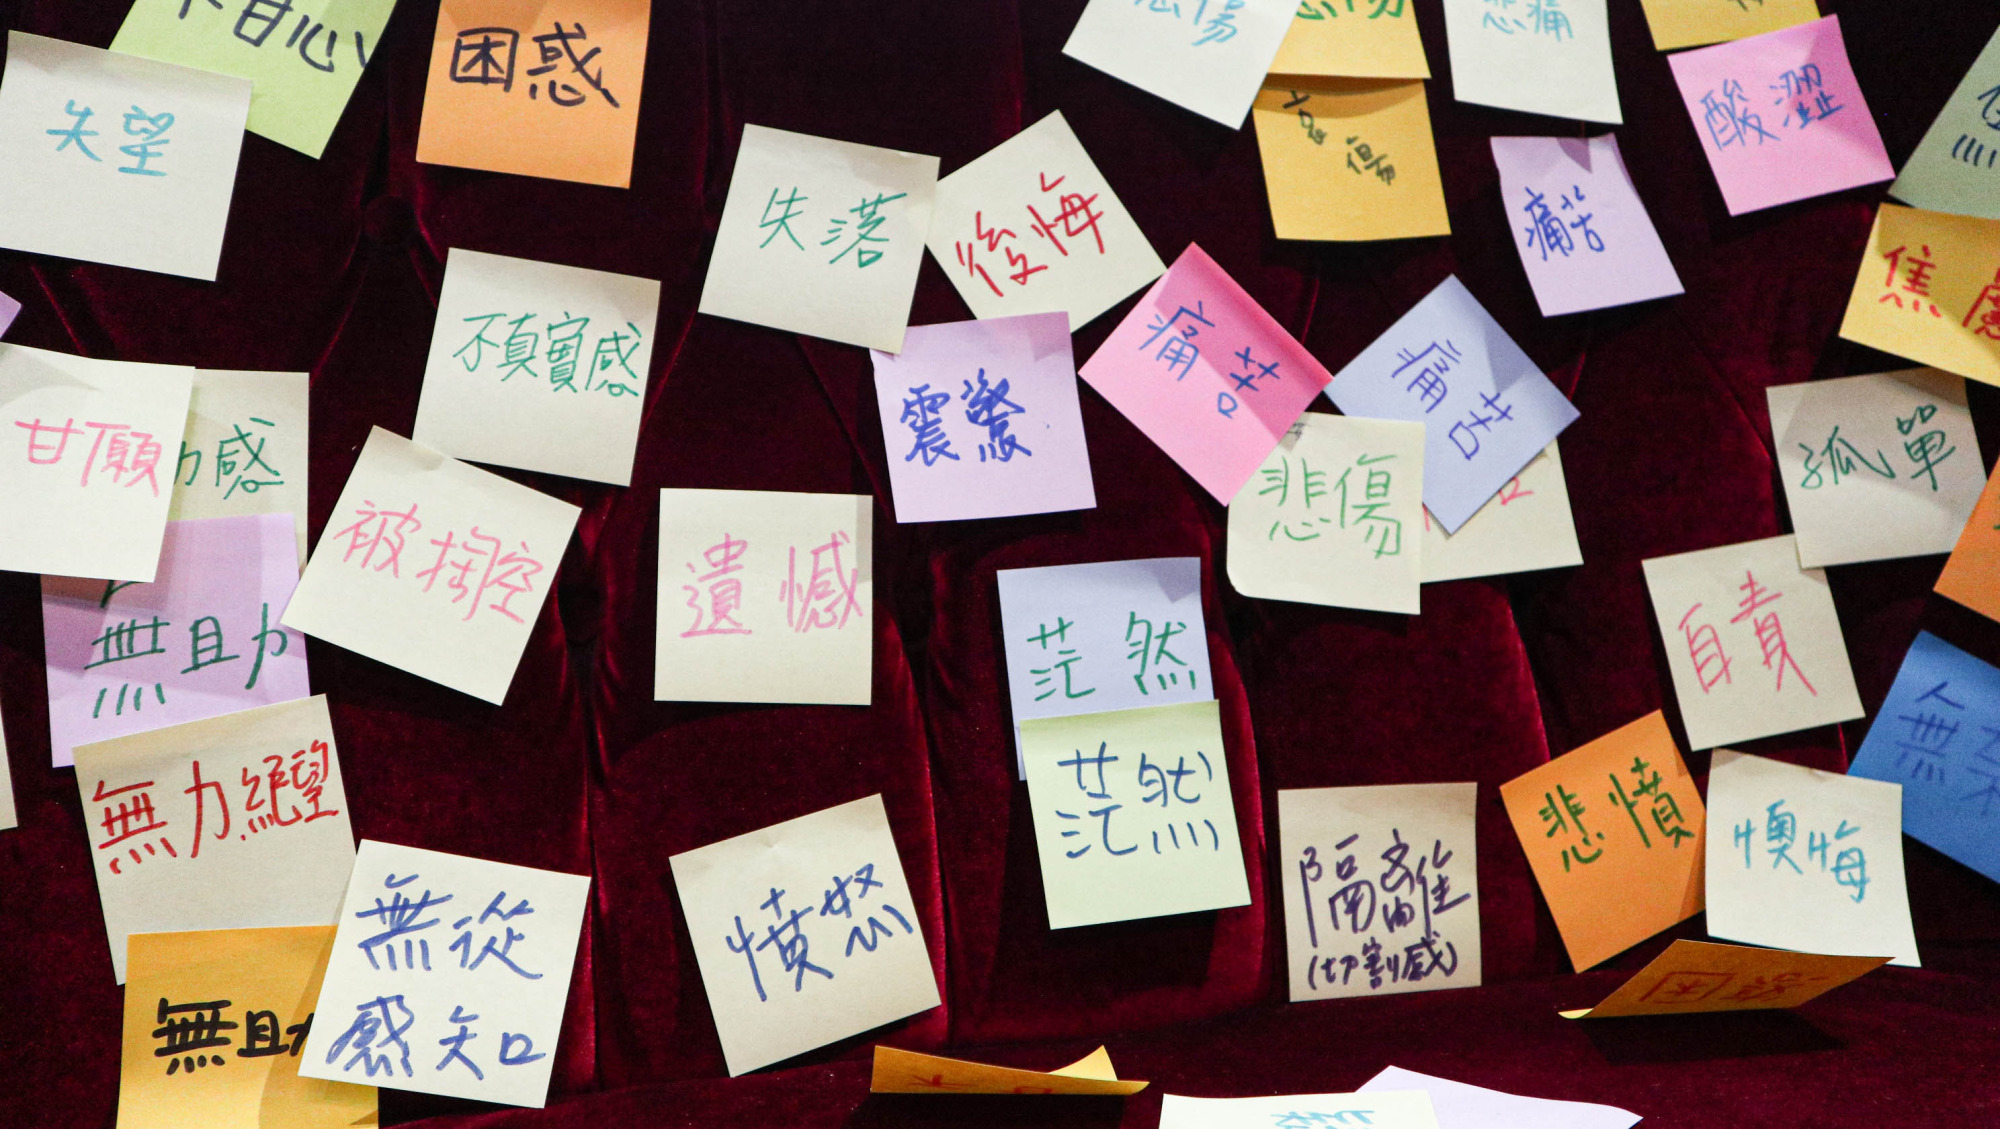 不甘心
困惑
悲傷
悲痛
失望
酸澀
哀傷
痛苦
失落
後悔
焦慮
不真實感
痛苦
痛苦
震驚
甘願
力感
孤單
悲傷
被掏空
遺憾
無助
茫然
自責
無力絕望
茫然
悲憤
懊悔
隔離
(切割感)
憤怒
無從
感知
無助
困惑